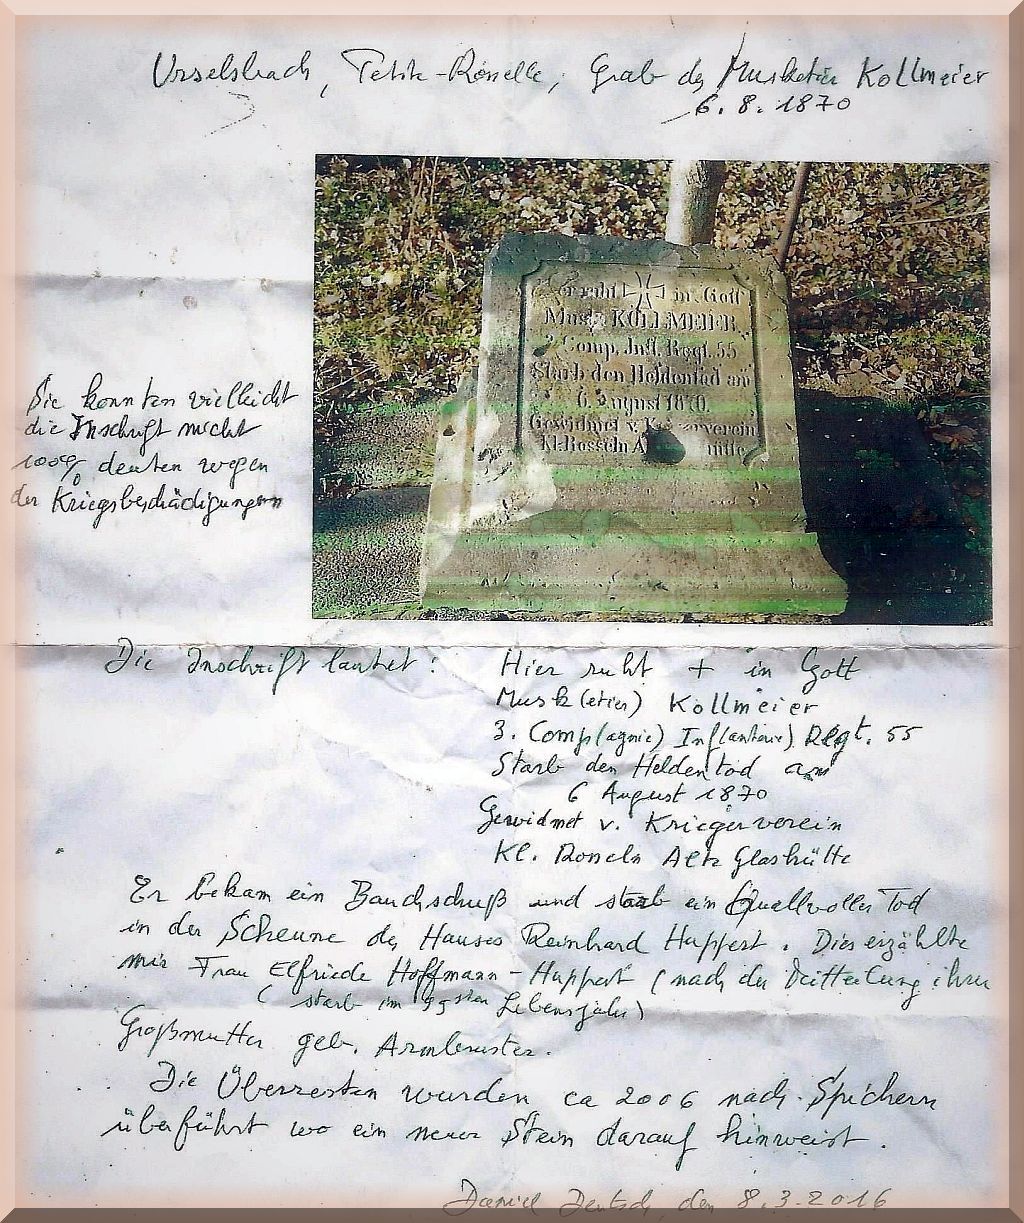 Urselsbach, Petite-Rosselle, Grab des Musketier Kollmeier
6.8.1870
ruht in Gott
Musk. KOLLMEIER
Comp. Inft. Regt. 55
Starb den Heldentod am
6. August 1870.
Gewidmet v. Kriegerverein
Kl. Rosseln A hütte
Sie konnten vielleicht
die Inschrift nicht
100% deuten wegen
der Kriegsbeschädigungen
Die Inschrift lautet:
Hier ruht + in Gott
Musk(etier) Kollmeier
3. Comp(agnie) Inf(anterie) Regt. 55
Starb den Heldentod am
6 August 1870
Gewidmet v. Kriegerverein
Kl. Rosseln Alte Glashütte
Er bekam ein Bauchschuß und starb ein Quallvoller Tod
in der Scheune des Hauses Reinhard Huppert. Dies erzählte
mir Frau Elfriede Hoffmann-Huppert (nach der Mitteilung ihrer
(starb im 99sten Lebensjahr)
Großmutter geb. Armbruster.
Die Überresten wurden ca 2006 nach Spichern
überführt wo ein neuer Stein darauf hinweist.
Daniel Deutsch, den 8.3.2016